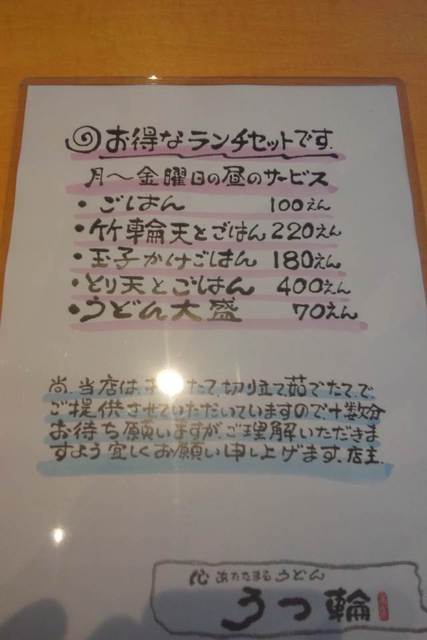 お得なランチセットです.
月〜金曜日の昼のサービス
・ごはん 100えん
・竹輪天とごはん 220えん
・玉子かけごはん 180えん
・とり天とごはん 400えん
・うどん大盛 70えん
尚、当店は、たて、切り立て茹でたてで
ご提供させていただいていますので十数分
お待ち願いますが、ご理解いただきま
すよう宜しくお願い申し上げます.店主
心あたたまるうどん
うつ輪